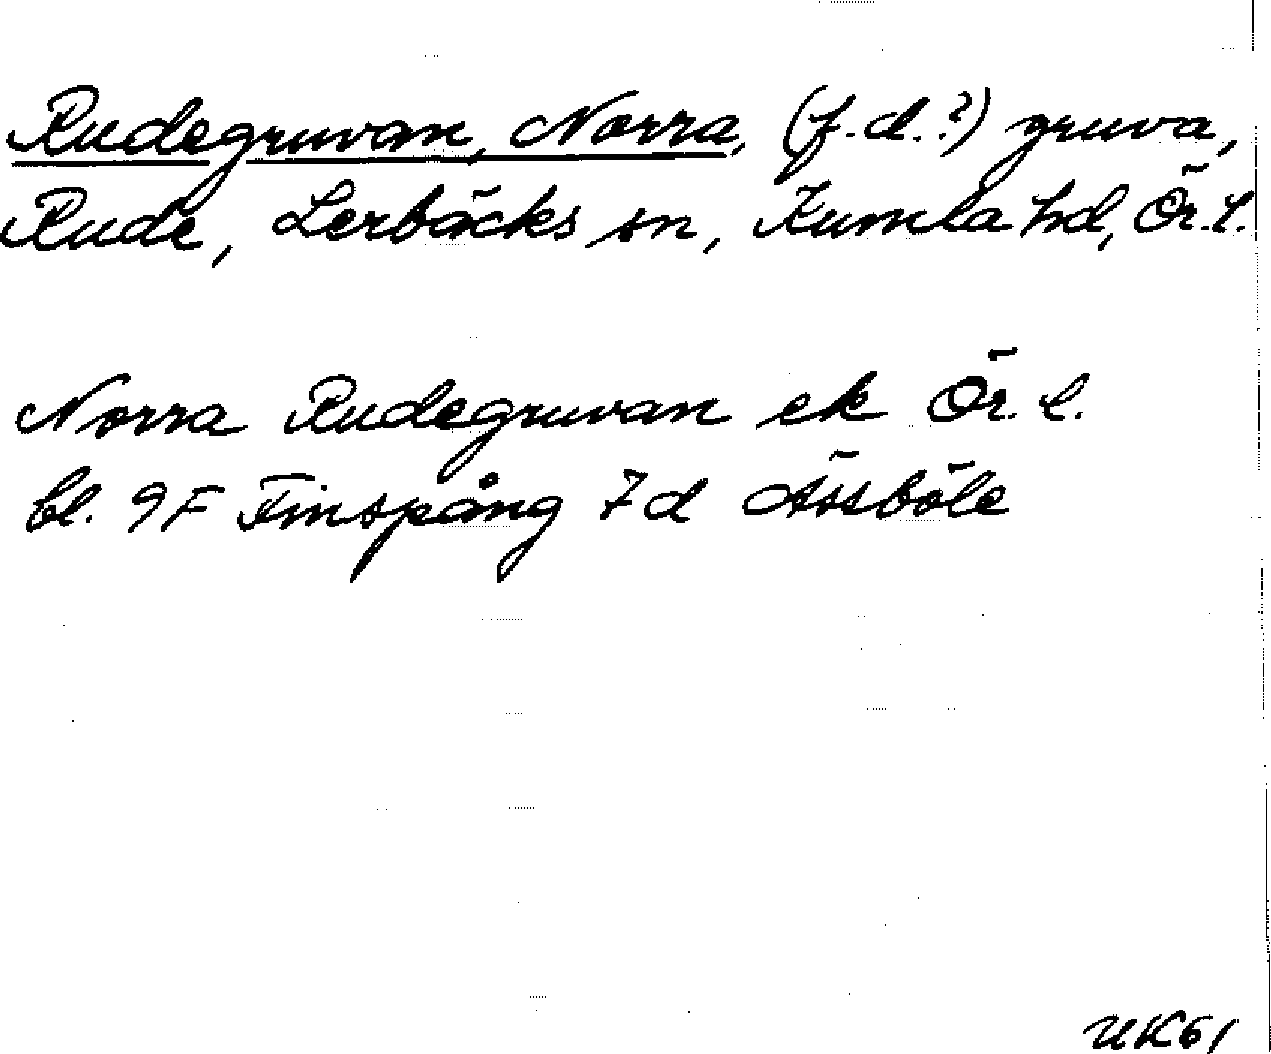 Rudegruvan, Norra, (f.d.?) gruva,
Rude, Lerbäcks sn, Kumla hd, Ör.l.
Norra Rudegruvan ek Ör. l.
bl. 9F Finspång 7d Åsböle
UK61